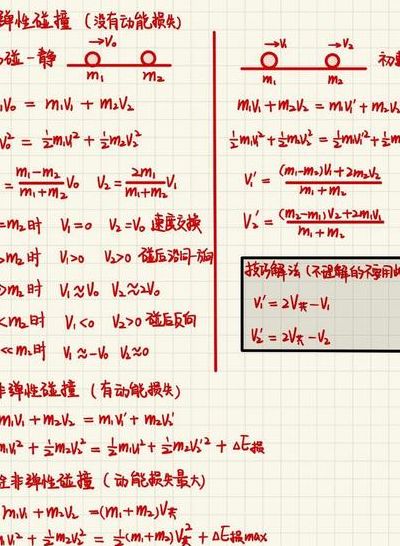 弹性碰撞（没有动能损失）
碰一静
→V₀
m₁ m₂
V₀ = m₁V₁ + m₂V₂
V₀² = ½m₁V₁² + ½m₂V₂²
= (m₁-m₂)/(m₁+m₂) V₀ V₂ = 2m₁/(m₁+m₂) V₁
=m₂时 V₁=0 V₂=V₀ 速度交换
>m₂时 V₁>0 V₂>0 碰后沿同一方向
>m₂时 V₁≈V₀ V₂≈2V₀
<m₂时 V₁<0 V₂>0 碰后反向
<<m₂时 V₁≈-V₀ V₂≈0
→V₁ →V₂
m₁ m₂
m₁V₁ + m₂V₂ = m₁V₁' + m₂V₂
½m₁V₁² + ½m₂V₂² = ½m₁V₁'² + ½m
V₁' = ((m₁-m₂)V₁+2m₂V₂)/(m₁+m₂)
V₂' = ((m₂-m₁)V₂+2m₁V₁)/(m₁+m₂)
技巧解法（不理解的不要用
V₁' = 2V共 - V₁
V₂' = 2V共 - V₂
非弹性碰撞（有动能损失）
m₁V₁ + m₂V₂ = m₁V₁' + m₂V₂'
m₁V₁² + ½m₂V₂² = ½m₁V₁² + ½m₂V₂'² + ΔE损
非弹性碰撞（动能损失最大）
m₁V₁ + m₂V₂ = (m₁+m₂)V共
m₁V₁² + ½m₂V₂² = ½(m₁+m₂)V共² + ΔE损max